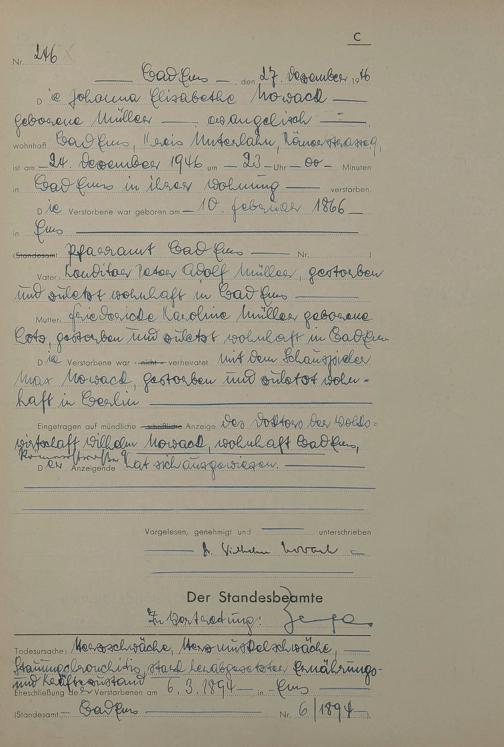 C
Nr. 246
Bad Ems, den 27. Dezember 1946
Die Johanna Elisabethe Nowack
geborene Müller — evangelisch —
wohnhaft Bad Ems, Kreis Unterlahn, Römerstrasse 9,
ist am 24. Dezember 1946 um 23 Uhr 00 Minuten
in Bad Ems in ihrer Wohnung verstorben.
Die Verstorbene war geboren am 10. Februar 1866
in Ems
(Standesamt Pfarramt Bad Ems Nr. )
Vater: Konditor Peter Adolf Müller, gestorben
und zuletzt wohnhaft in Bad Ems
Mutter: Friedericke Karoline Müller geborene
gestorben und zuletzt wohnhaft in Bad Ems
Die Verstorbene war nicht verheiratet mit dem Schauspieler
Max Nowack, gestorben und zuletzt wohn-
haft in Berlin
Eingetragen auf mündliche schriftliche Anzeige des Doktors der Volks-
wirtschaft Wilhelm Nowack, wohnhaft Bad Ems,
Römerstraße 9
Der Anzeigende hat sich ausgewiesen.
Vorgelesen, genehmigt und unterschrieben
Dr. Wilhelm Nowack
Der Standesbeamte
In Vertretung:
Todesursache: Herzschwäche, Herzmuskelschwäche,
Stauungsbronchitis, stark herabgesetzter Ernährungs-
und Kräftezustand
Eheschließung der Verstorbenen am 6.3.1894 in Ems
(Standesamt Bad Ems Nr. 6/1894)